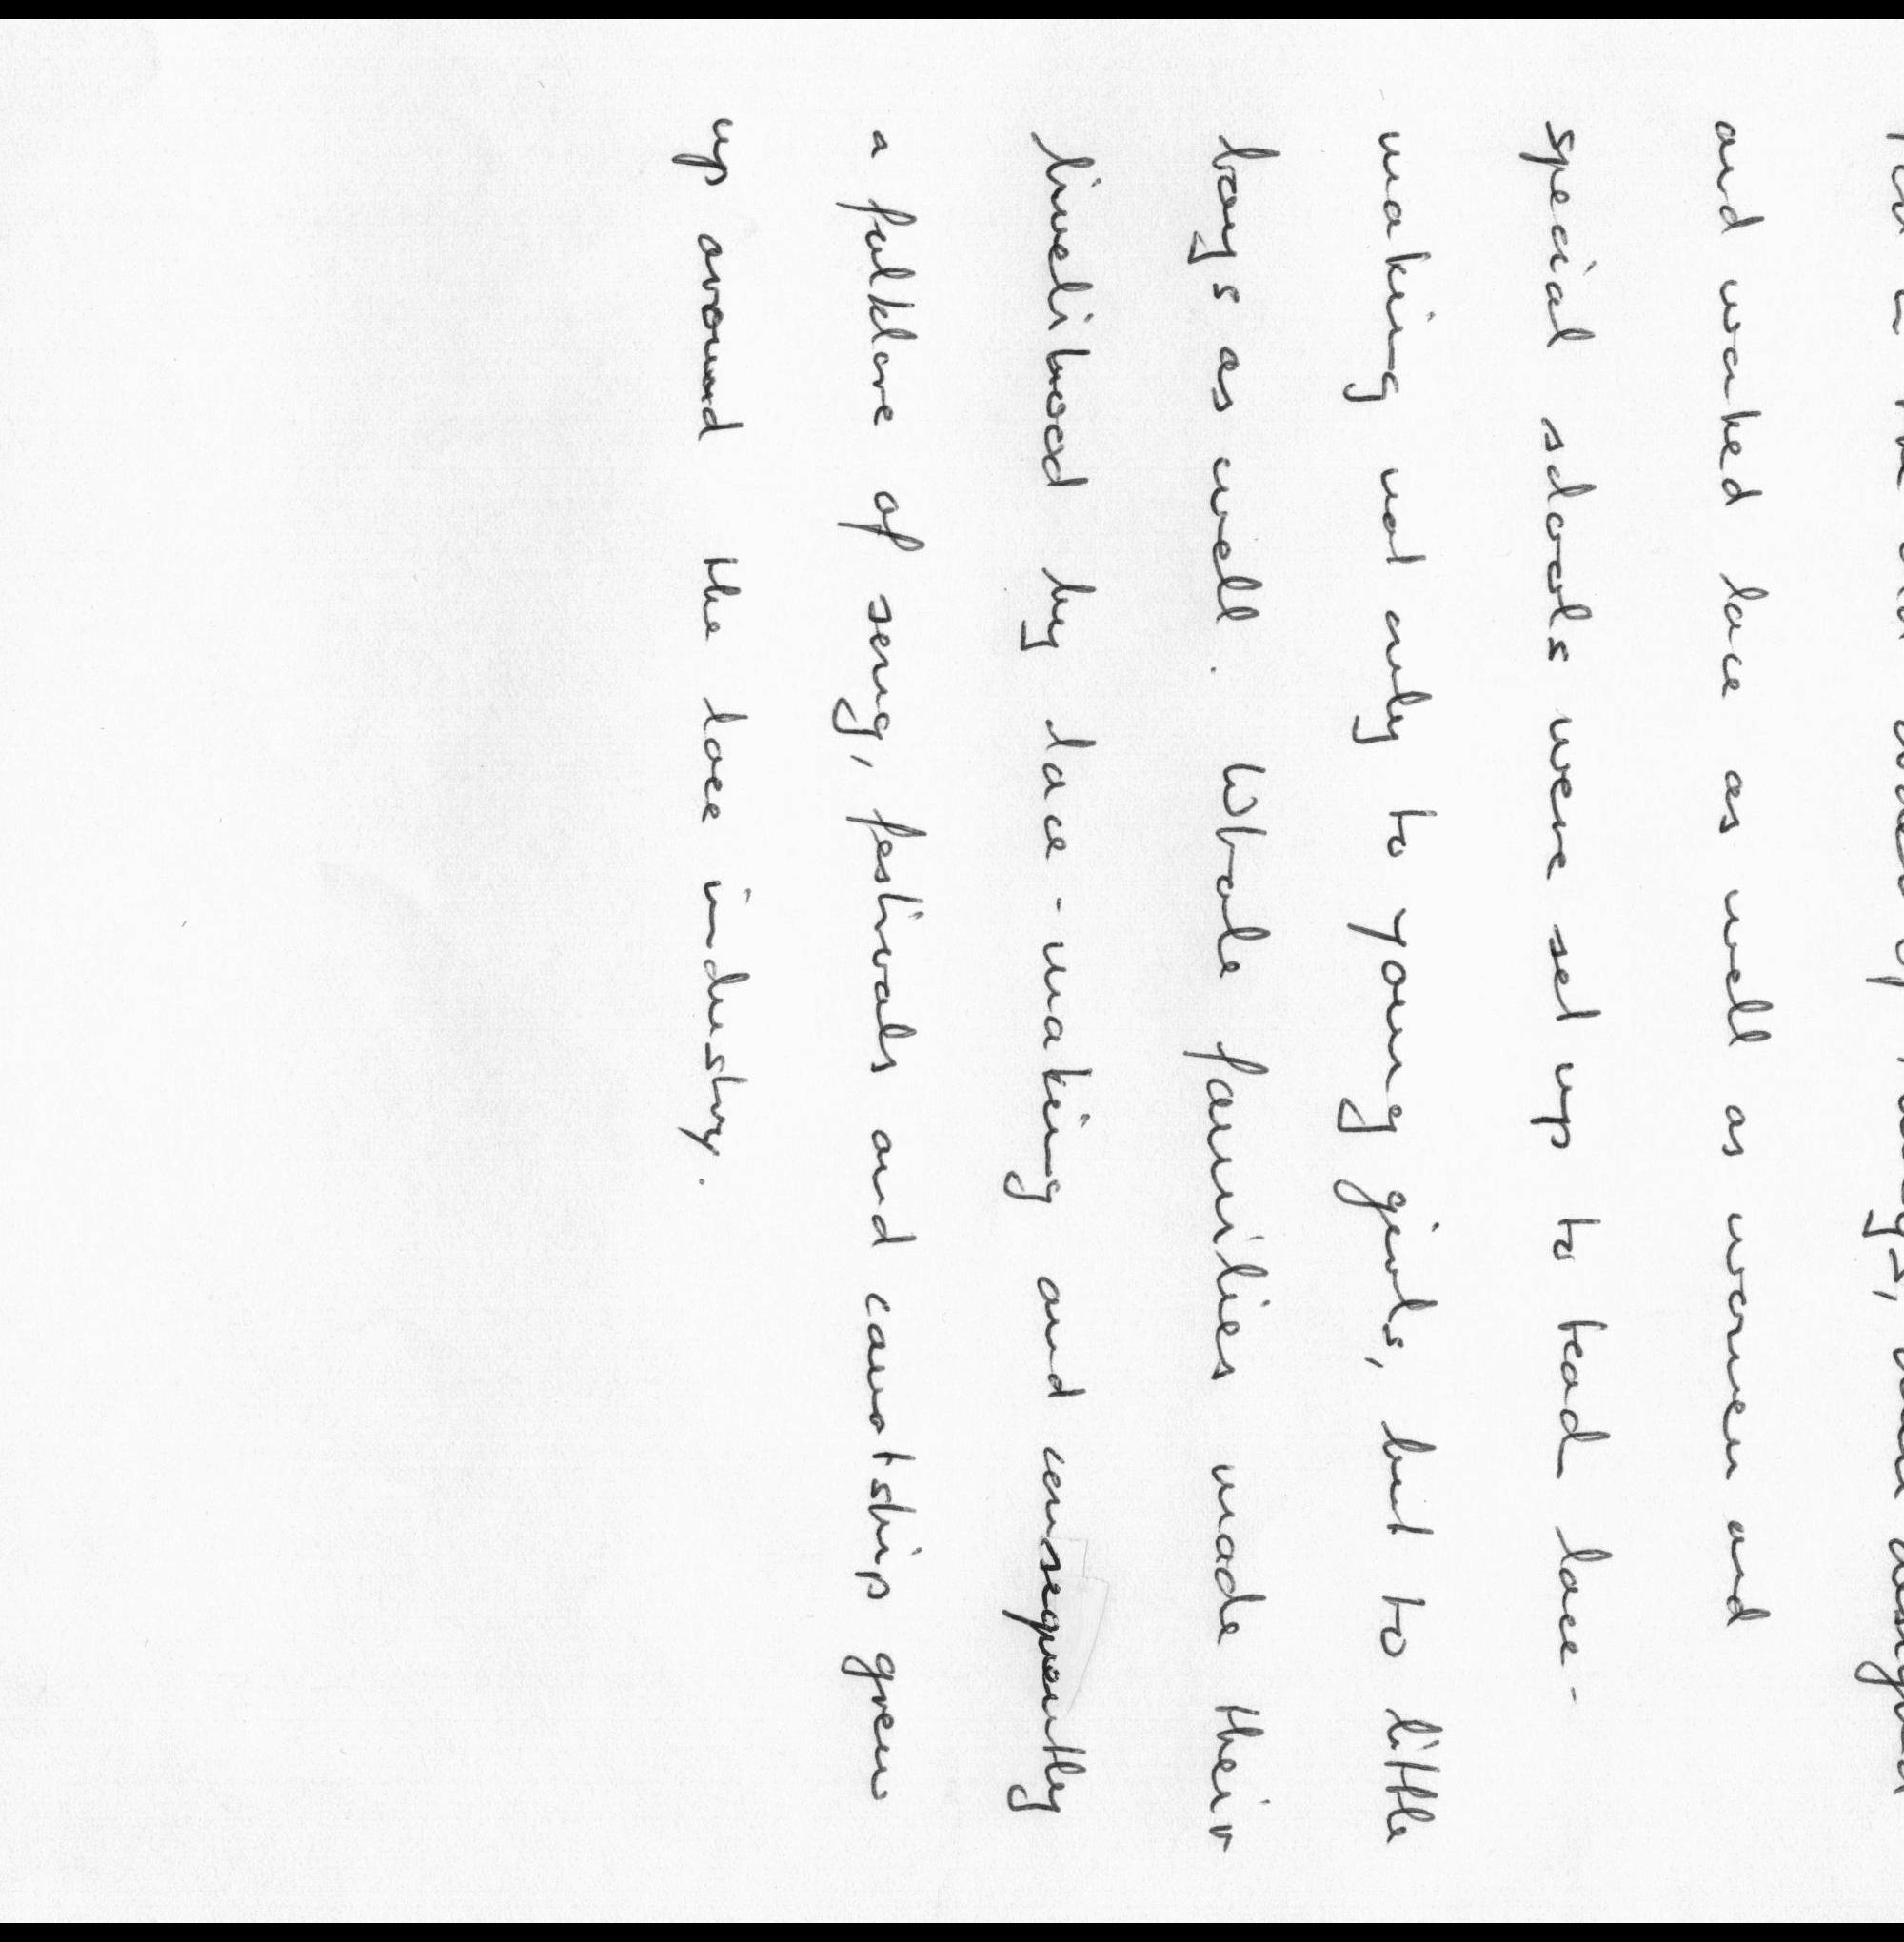 and worked lace as well as women and
special schools were set up to teach lace-
making not only to young girls, but to little
boys as well. Whole families made their
livelihood by lace-making and consequently
a folklore of song, festivals and courtship grew
up around the lace industry.